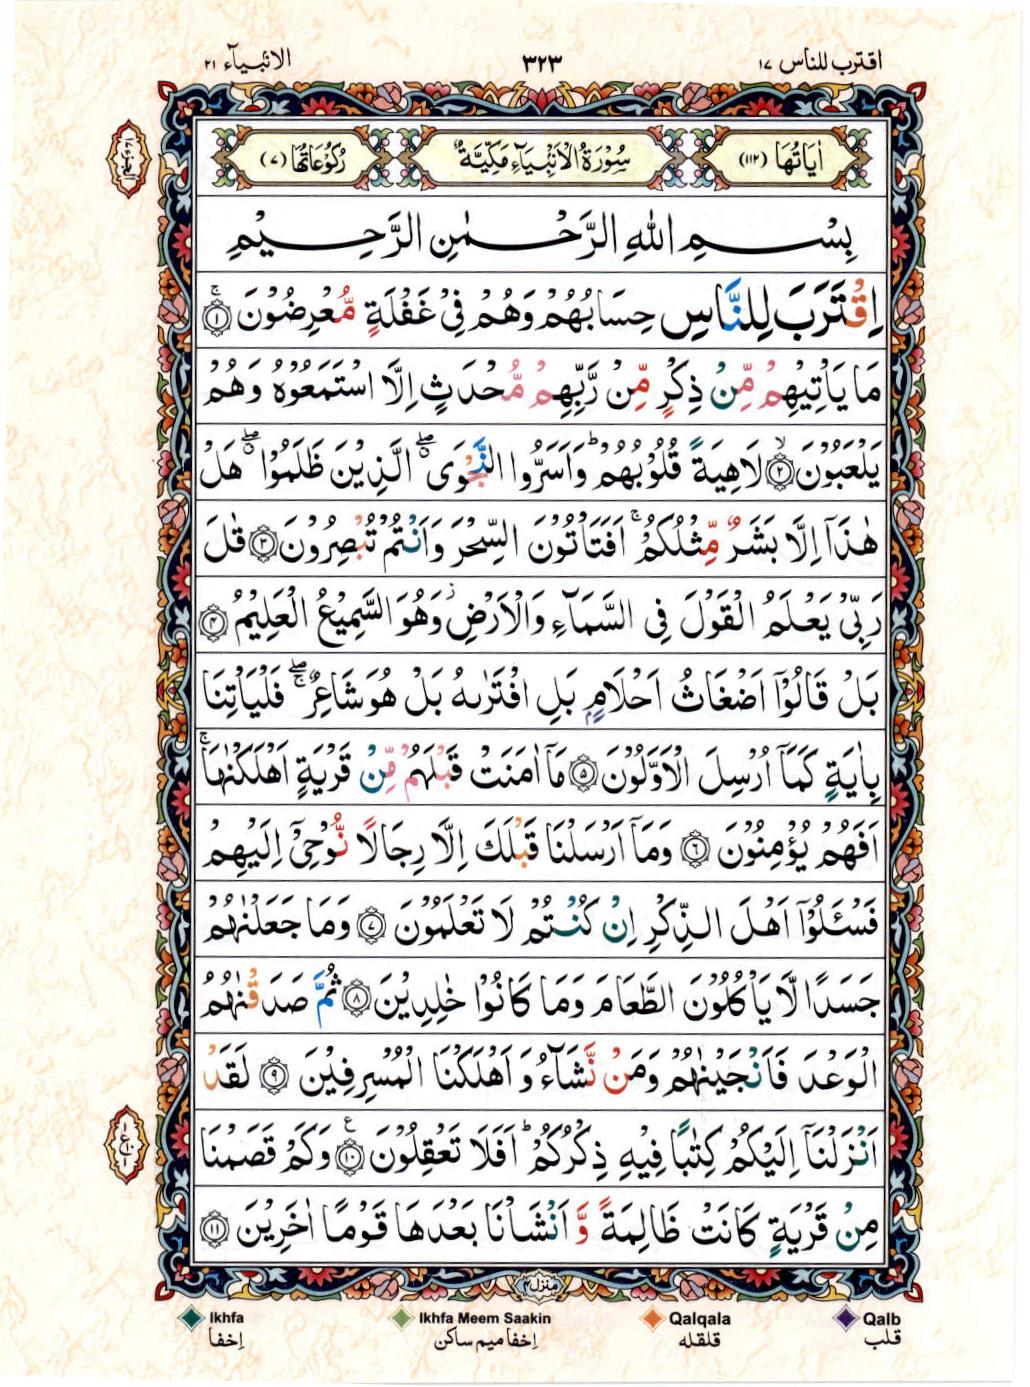 اقترب للناس ١٧
٣٢٣
الانبيآء ٢١
اٰيَاتُهَا (١١٢)
سُوْرَةُ الْاَنْۢبِيَآءِ مَكِّيَّةٌ
رُكُوْعَاتُهَا (٧)
بِسْمِ اللهِ الرَّحْمٰنِ الرَّحِيْمِ
اِقْتَرَبَ لِلنَّاسِ حِسَابُهُمْ وَهُمْ فِيْ غَفْلَةٍ مُّعْرِضُوْنَ ۚ ﴿١﴾
مَا يَاْتِيْهِمْ مِّنْ ذِكْرٍ مِّنْ رَّبِّهِمْ مُّحْدَثٍ اِلَّا اسْتَمَعُوْهُ وَهُمْ
يَلْعَبُوْنَ ۙ ﴿٢﴾ لَاهِيَةً قُلُوْبُهُمْ ؕ وَاَسَرُّوا النَّجْوَى ۖ الَّذِيْنَ ظَلَمُوْا ۖ هَلْ
هٰذَآ اِلَّا بَشَرٌ مِّثْلُكُمْ ۚ اَفَتَاْتُوْنَ السِّحْرَ وَاَنْتُمْ تُبْصِرُوْنَ ﴿٣﴾ قٰلَ
رَبِّيْ يَعْلَمُ الْقَوْلَ فِي السَّمَآءِ وَالْاَرْضِ ۚ وَهُوَ السَّمِيْعُ الْعَلِيْمُ ﴿٤﴾
بَلْ قَالُوْٓا اَضْغَاثُ اَحْلَامٍۢ بَلِ افْتَرٰىهُ بَلْ هُوَ شَاعِرٌ ۚۖ فَلْيَاْتِنَا
بِاٰيَةٍ كَمَآ اُرْسِلَ الْاَوَّلُوْنَ ﴿٥﴾ مَآ اٰمَنَتْ قَبْلَهُمْ مِّنْ قَرْيَةٍ اَهْلَكْنٰهَا ۚ
اَفَهُمْ يُؤْمِنُوْنَ ﴿٦﴾ وَمَآ اَرْسَلْنَا قَبْلَكَ اِلَّا رِجَالًا نُّوْحِيْٓ اِلَيْهِمْ
فَسْـَٔلُوْٓا اَهْلَ الذِّكْرِ اِنْ كُنْتُمْ لَا تَعْلَمُوْنَ ﴿٧﴾ وَمَا جَعَلْنٰهُمْ
جَسَدًا لَّا يَاْكُلُوْنَ الطَّعَامَ وَمَا كَانُوْا خٰلِدِيْنَ ﴿٨﴾ ثُمَّ صَدَقْنٰهُمُ
الْوَعْدَ فَاَنْجَيْنٰهُمْ وَمَنْ نَّشَآءُ وَاَهْلَكْنَا الْمُسْرِفِيْنَ ﴿٩﴾ لَقَدْ
اَنْزَلْنَآ اِلَيْكُمْ كِتٰبًا فِيْهِ ذِكْرُكُمْ ؕ اَفَلَا تَعْقِلُوْنَ ﴿١٠﴾ ع وَكَمْ قَصَمْنَا
مِنْ قَرْيَةٍ كَانَتْ ظَالِمَةً وَّاَنْشَاْنَا بَعْدَهَا قَوْمًا اٰخَرِيْنَ ﴿١١﴾
منزل ٤
Ikhfa
Ikhfa Meem Saakin
Qalqala
Qalb
اِخفا
اِخفا ميم ساكن
قلقله
قلب